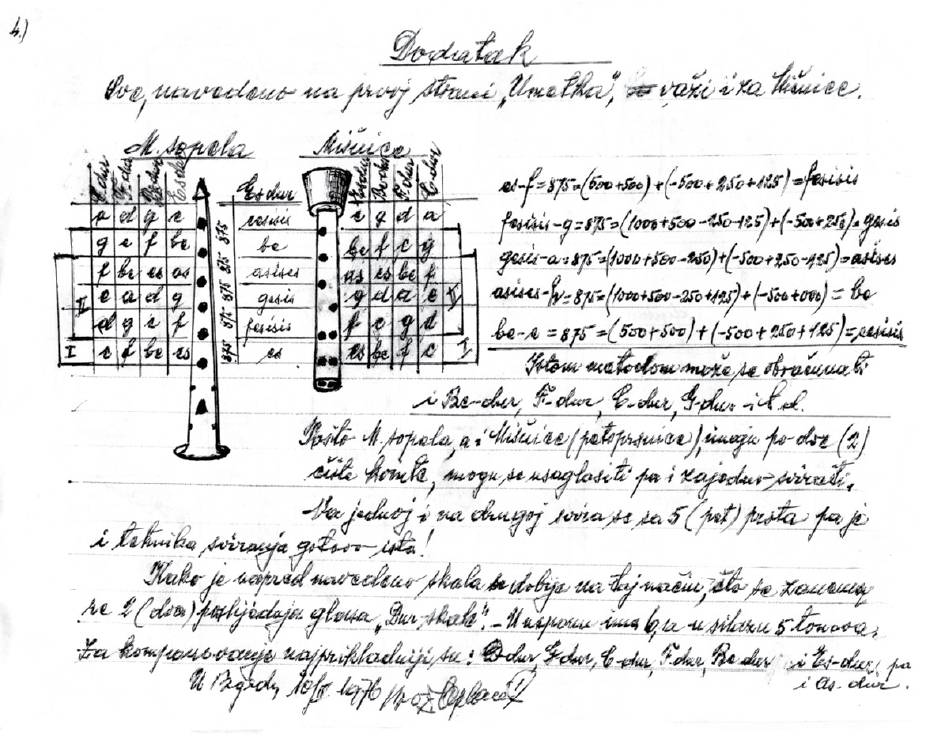 4.)
Dodatak
Sve, navedeno na prvoj strani „Umetka“, važi i za Mišnice.
M. sopela Mišnice
C-dur F-dur Be-dur Es-dur Es-dur Es-dur Be-dur F-dur C-dur
a d g c cesisis c g d a
g c f be be be f c g
f be es as asises as es be f
e a d g gesis g d a e
d g c f fesisis f c g d
c f be es es es be f c
II II
I I
875 875 875 875 875
es-f=875=(500+500)+(-500+250+125)=fesisis
fesisis-g=875=(1000+500-250-125)+(-500+250)=gesis
gesis-a=875=(1000+500-250)+(-500+250-125)=asises
asises-h=875=(1000+500-250+125)+(-500+000)=be
be-c=875=(500+500)+(-500+250+125)=cesisis
Istom metodom može se obračunati
i Be-dur, F-dur, C-dur, G-dur i t.d.
Pošto M. sopela, a i Mišnice (petoprsnice), imaju po dve (2)
čiste kvinte, mogu se usaglasiti pa i zajedno svirati.
Na jednoj i na drugoj svira se sa 5 (pet) prsta pa je
i tehnika sviranja gotovo ista!
Kako je napred navedeno skala se dobije na taj način, što se
2 (dva) poslijednja glasa „Dur skale“. - U usponu ima 6, a u silazu 5 tonova.
Za komponovanje najprikladniji su: D dur, G dur, C-dur, F dur, Be dur i Es-dur, pa
i As-dur.
U Bgrdu, 1976